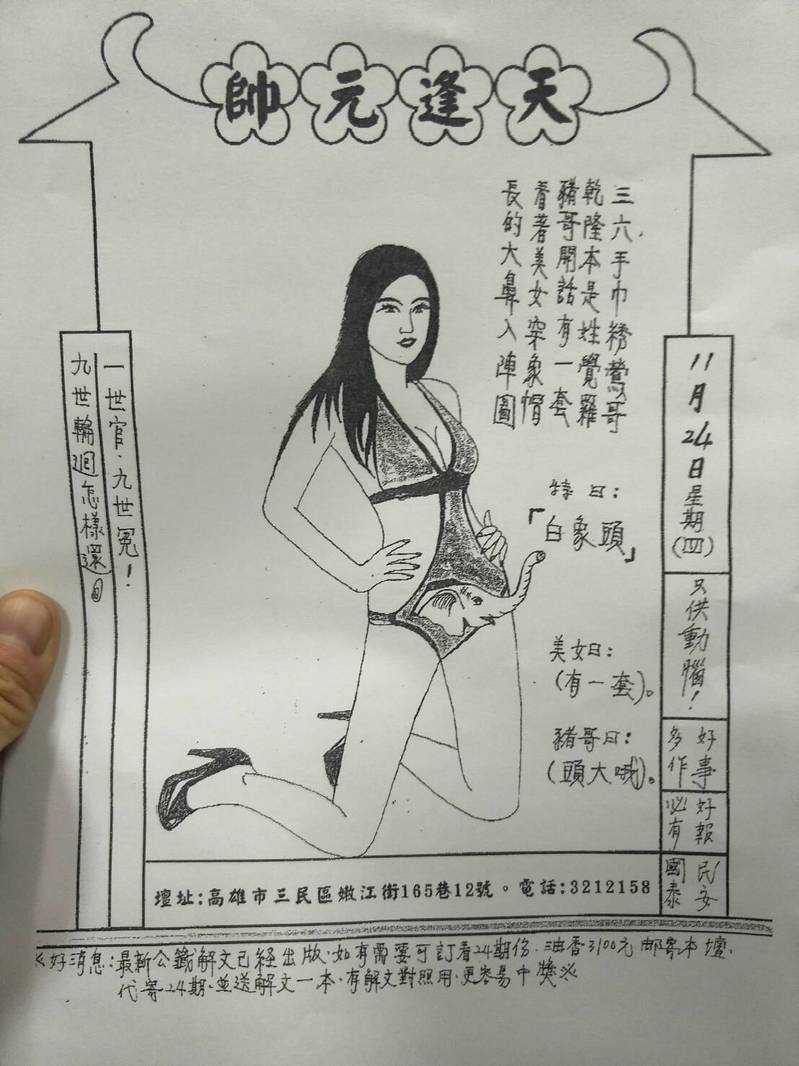 天逢元帥
三六手巾綉鶯哥
乾隆本是姓覺羅
豬哥開話有一套
看著美女穿象帽
長的大鼻入陣圖
特曰：
「白象頭」
美女曰：
（有一套）。
豬哥曰：
（頭大哦）。
11月24日星期（四）
只供動腦！
好事
多作
好報
必有
民安
國泰
一世官．九世冤！
九世輪迴怎樣還
壇址：高雄市三民區嫩江街165巷12號。電話：3212158
※好消息：最新公籤解文已經出版．如有需要可訂看24期份．油香3100元 郵寄本壇．
代寄24期．並送解文一本．有解文對照用．更容易中獎※